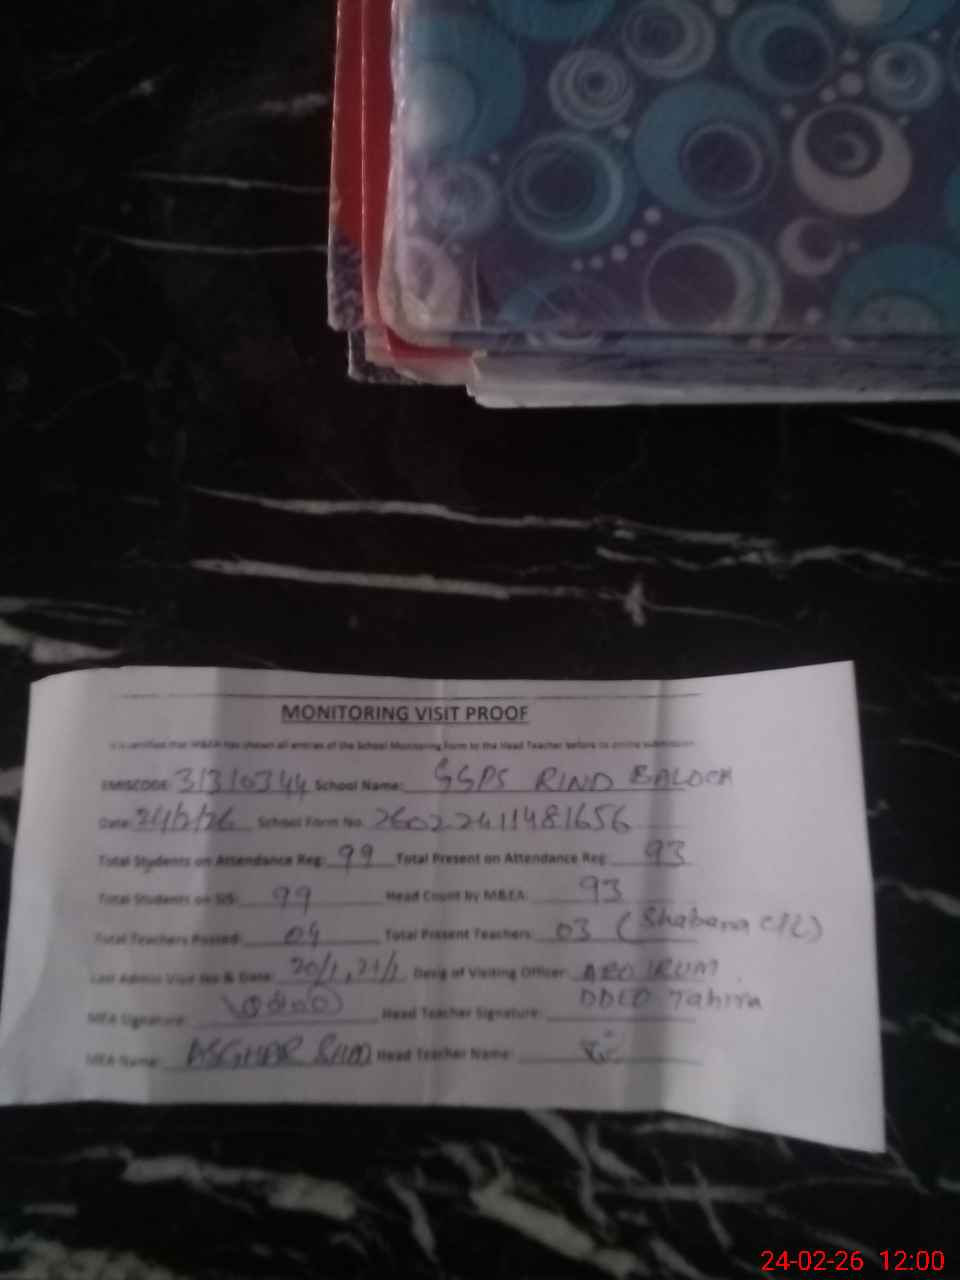 MONITORING VISIT PROOF
It is certified that M&EA has shown all entries of the School Monitoring Form to the Head Teacher before its online submission
EMISCODE: 31310344 School Name: GGPS RIND BALOCH
Date: 24/2/26 School Form No. 26022411481656
Total Students on Attendance Reg: 99 Total Present on Attendance Reg: 93
Total Students on SIS: 99 Head Count by M&EA: 93
Total Teachers Posted: 04 Total Present Teachers: 03 (Shabana C/L)
Last Admin Visit No & Date: 20/1, 21/1 Desig of Visiting Officer: AEO IRUM
DDEO Tahira
MEA Signature: Head Teacher Signature:
MEA Name: ASGHAR Head Teacher Name:
24-02-26 12:00